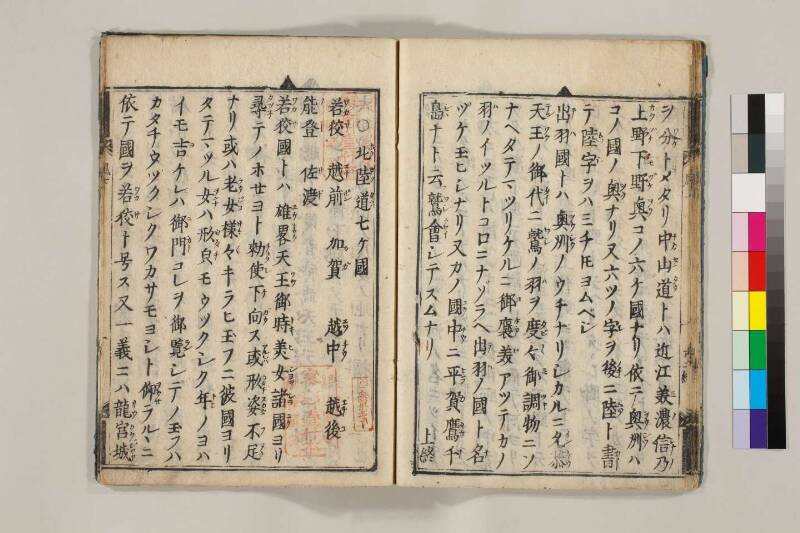 ヲ分トメタリ中山道トハ近江美濃信乃
上野下野奥コノ六ケ國ナリ依テ奥洲ハ
コノ國ノ奥ナリ又六ツノ字ヲ後ニ陸ト書
テ陸字ヲハミチトモヨムベシ
出羽國トハ奥洲ノウチナリシカルニ
天王ノ御代ニ鷲ノ羽ヲ度々御調物ニソ
ナヘタテマツリケルニ御褒美アツテカノ
羽ノイツルトコロニナソラヘ出羽ノ國ト名
ツケ玉ヒシナリ又カノ國中ニ平賀鷹千
島ナトニ云鷲會シテスムナリ 上終
○北陸道七ケ國
若狡 越前 加賀 越中 越後
能登 佐渡
若狡國トハ雄畧天王御時美女諸國ヨリ
尋テノホセヨト勅使下向ス或形姿不足
ナリ或ハ老女様々キラヒ玉フニ彼國ヨリ
タテマツル女ハ形良モウツクシク年ノヨハ
イモ吉ケレハ御門コレヲ御覽シテノ玉フハ
カタチウツクシクワカサモヨシト仰ラルヽニ
依テ國ヲ若狡ト号ス又一義ニハ龍宮城